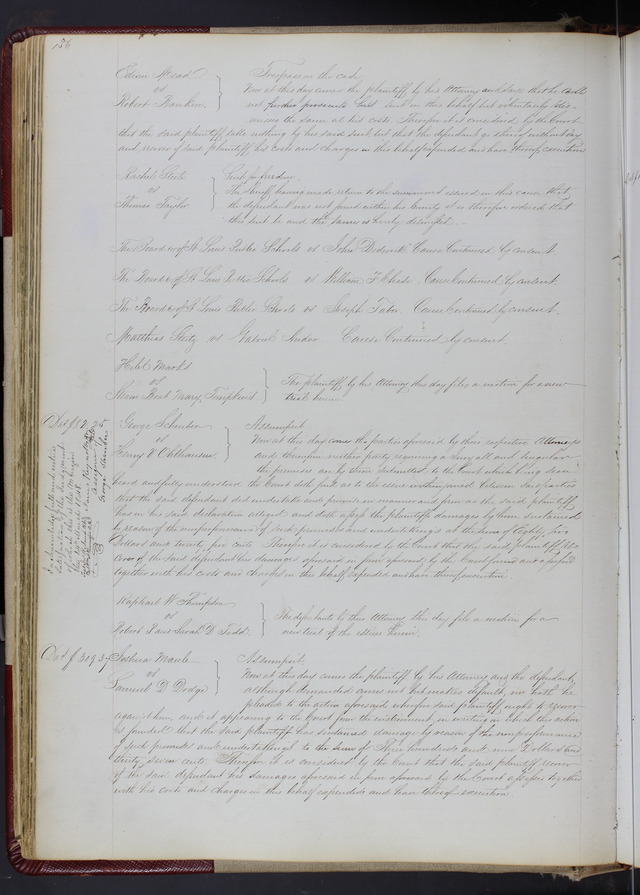 156
Edwin Mead } Trespass on the case
vs Now at this day comes the plaintiff by his Attorney and says that he will
Robert Rankin. not further prosecute his suit in this behalf but voluntarily dis-
misses the same at his costs. Therefore it is considered by the Court
that the said plaintiff take nothing by his said suit but that the defendant go thereof without day
and recover of said plaintiff his costs and charges in this behalf expended and have thereof execution
Rachel Steele } Suit for freedom.
vs The Sheriff having made return to the summons issued in this cause that
Thomas Taylor the defendant was not found within his County it is therefore ordered that
this suit be and the same is hereby dismissed.
The Board &c of St Louis Public Schools vs John Cause Continued by consent.
The Board &c of St Louis Public Schools vs William Chase. Cause Continued by consent
The Board &c of St Louis Public Schools vs Joseph Tabor. Cause Continued by consent.
Matthias Steitz vs Gabriel Cause Continued by consent.
Marks
vs } The plaintiff by his Attorney this day files a motion for a new
Steam Boat Mary Tompkins trial herein.
George } Assumpsit
vs Now at this day come the parties aforesaid by their respective Attorneys
Henry and thereupon neither party requiring a Jury all and singular
the premises are by them submitted to the Court which being seen
heard and fully understood the Court doth find as to the issue within joined between the parties
that the said defendant did undertake and promise in manner and form as the said plaintiff
has in his said declaration alleged and doth assess the plaintiffs damages by them sustained
by reason of the nonperformance of such promises and undertakings at the sum of Eighty five
Dollars and twenty five cents. Therefore it is considered by the Court that the said plaintiff re-
cover of the said defendant his damages aforesaid in form aforesaid by the Court found and assessed
together with his costs and charges in this behalf expended and have thereof execution.
Raphael W Thompson
vs } The defendants by their Attorney this day file a motion for a
Robert and Sarah D Todd. new trial of the issues herein.
Joshua Maule } Assumpsit.
vs Now at this day comes the plaintiff by his Attorney and the defendant
Samuel D Dodge although demanded comes not but makes default, nor hath he
pleaded to the action aforesaid wherefore said plaintiff ought to recover
against him, and it appearing to the Court from the instrument in writing on which this action
is founded that the said plaintiff has sustained damage by reason of the nonperformance
of such promises and undertakings to the sum of Three hundred and nine Dollars and
thirty seven cents. Therefore it is considered by the Court that the said plaintiff recover
of the said defendant his damages aforesaid in form aforesaid by the Court assessed together
with his costs and charges in this behalf expended and have thereof execution